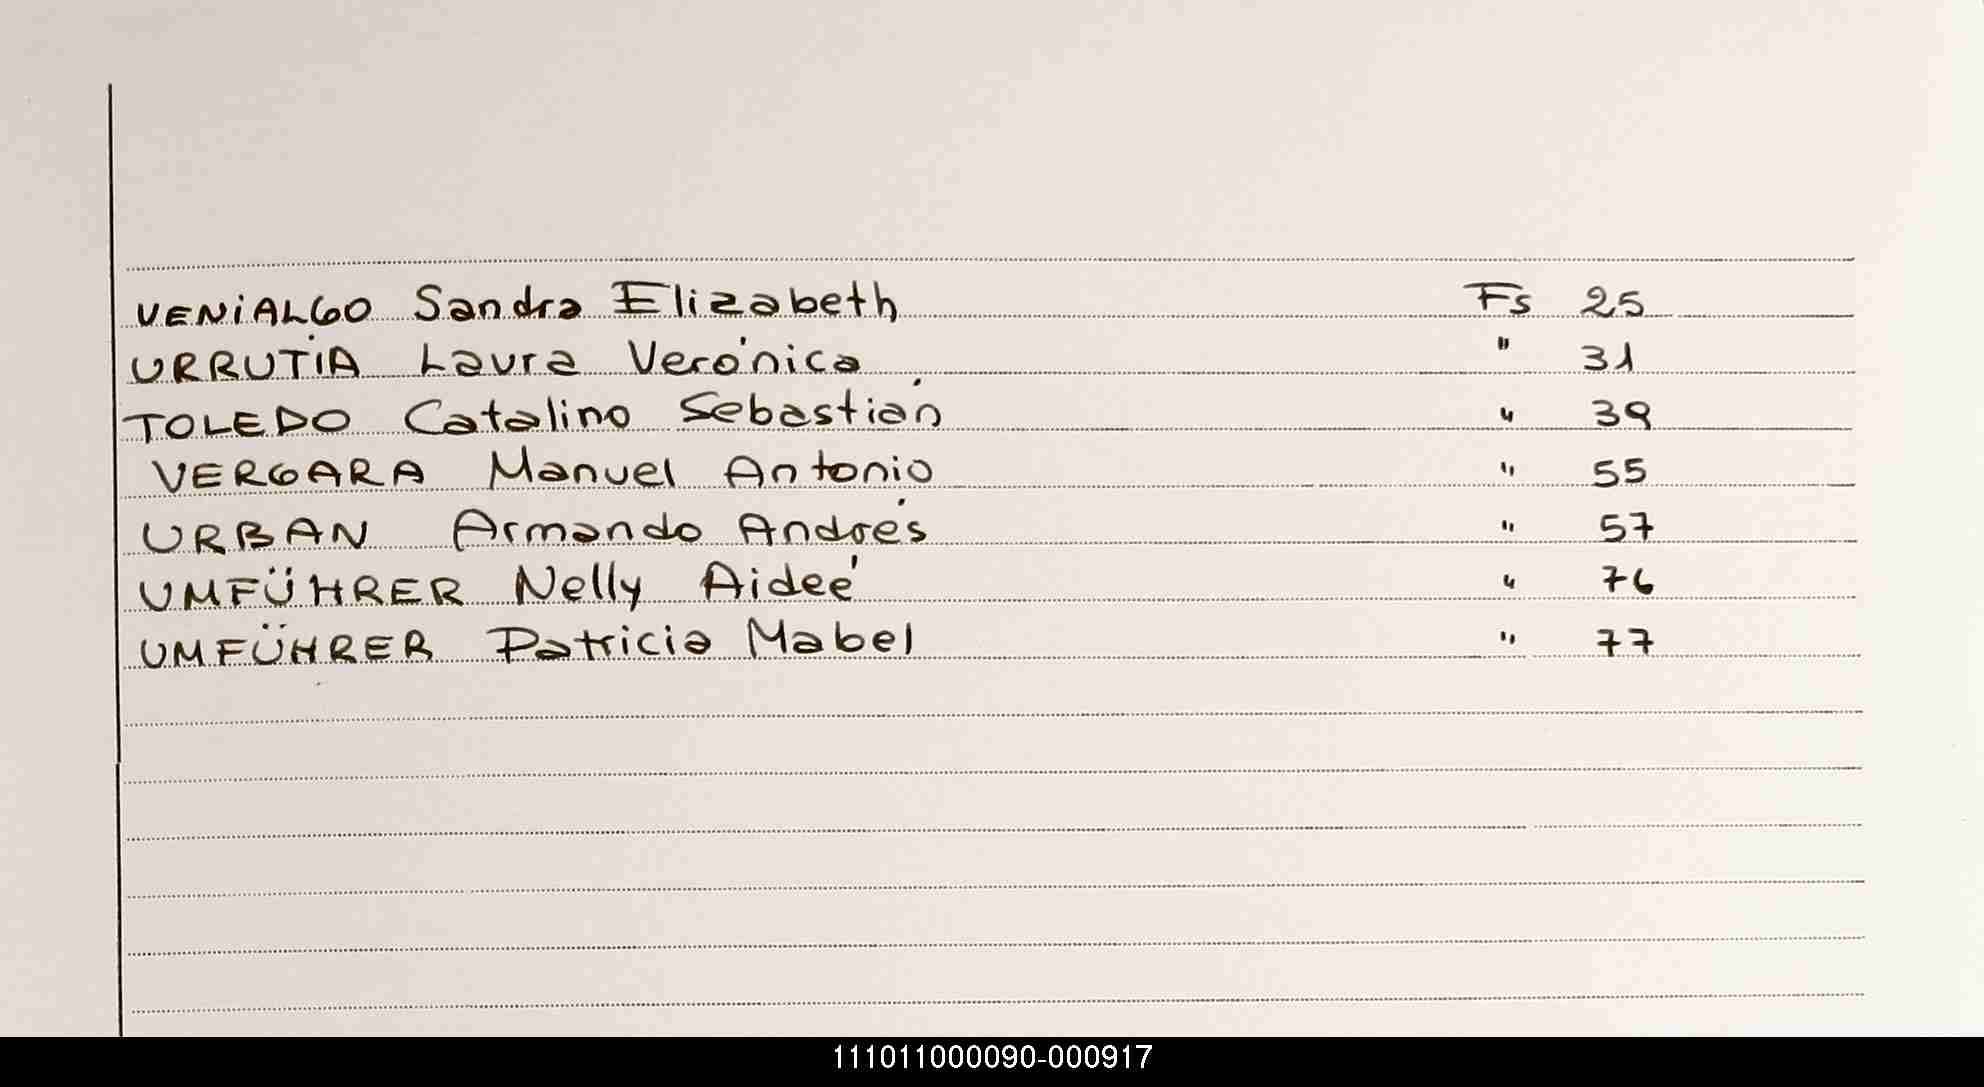 VENIALGO Sandra Elizabeth Fs 25
URRUTIA Laura Verónica " 31
TOLEDO Catalino Sebastián " 39
VERGARA Manuel Antonio " 55
URBAN Armando Andrés " 57
UMFÜHRER Nelly Aideé " 76
UMFÜHRER Patricia Mabel " 77
111011000090-000917